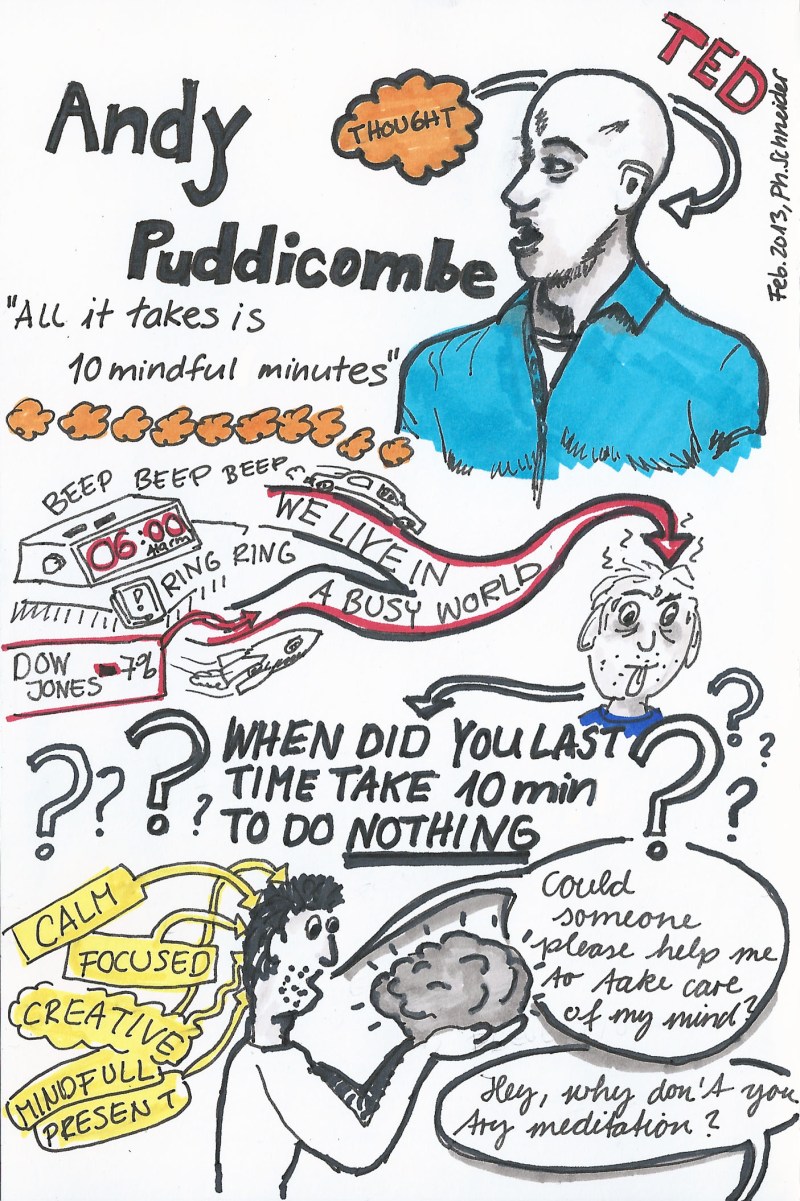 TED
Feb. 2013, Ph. Schneider
THOUGHT
Andy
Puddicombe
"ALL it takes is
10 mindful minutes"
BEEP BEEP BEEP
06:00
Alarm
RING RING
WE LIVE IN
A BUSY WORLD
DOW
JONES -7%
WHEN DID YOU LAST
TIME TAKE 10 min
TO DO NOTHING
? ? ? ? ? ? ? ?
CALM
FOCUSED
CREATIVE
MINDFULLY
PRESENT
Could
someone
please help me
to take care
of my mind?
Hey, why don't you
try meditation?